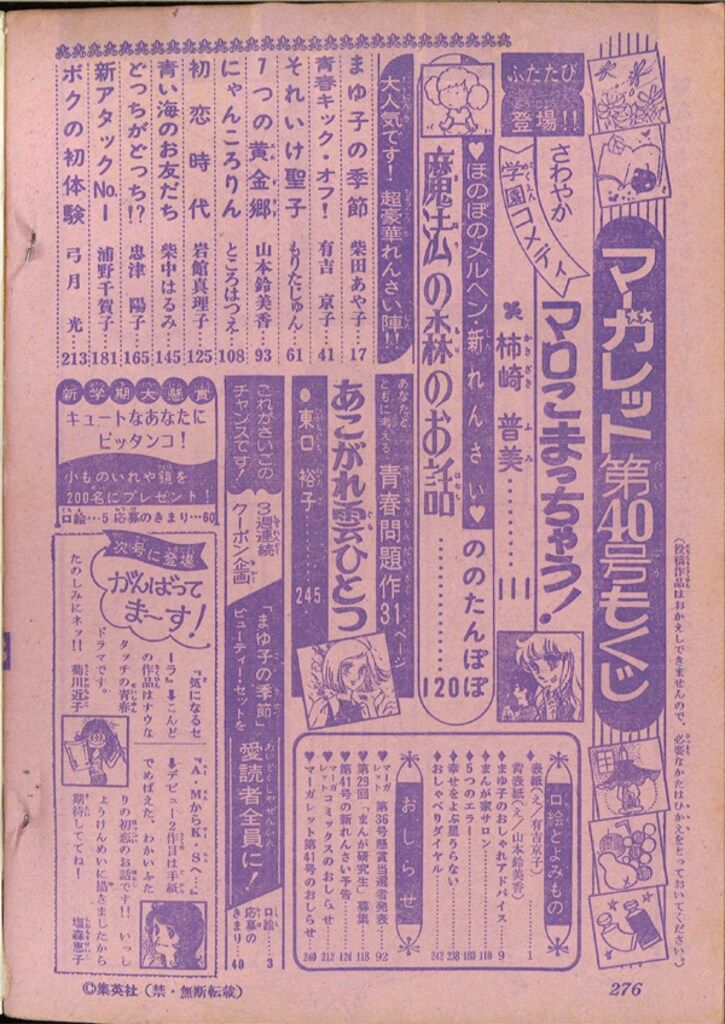 マーガレット第40号もくじ
(投稿作品はおかえしできませんので、必要なかたはひかえをとっておいてください。)
ふたたび登場!!
さわやか
学園コメディ
マロこまっちゃう!
柿崎普美………111
♥ほのぼのメルヘン・新れんさい♥
魔法の森のお話
ののたんぽぽ………120
大人気です!超豪華れんさい陣!!
まゆ子の季節 柴田あや子…17
青春キック・オフ! 有吉京子…41
それいけ聖子 もりたじゅん…61
7つの黄金郷 山本鈴美香…93
にゃんころりん ところはつえ…108
初恋時代 岩館真理子…125
青い海のお友だち 柴中はるみ…145
どっちがどっち!? 忠津陽子…165
新アタックNo.1 浦野千賀子…181
ボクの初体験 弓月光…213
あなたとともに考える 青春問題作31ページ
あこがれ雲ひとつ
●東口裕子………245
これがさいごのチャンスです!
3週連続クーポン企画
「まゆ子の季節」ビューティーセットを
愛読者全員に!
口絵…3
応募のきまり…40
新学期大懸賞
キュートなあなたに
ピッタンコ!
小ものいれや鏡を
200名にプレゼント!
口絵…5 応募のきまり…60
次号に登場
がんばって
まーす!
『気になるセ
ーラ』⬇こんど
の作品はナウな
タッチの青春
ドラマです。
たのしみにネッ!!
菊川近子
『A・MからK・Sへ…』
⬇デビュー2作目は手紙
でめばえた、わかいふた
りの初恋のお話です!!いっし
ょうけんめいに描きましたから
期待しててね!
塩森恵子
口絵とよみもの
♦表紙(え/有吉京子)…1
背表紙(え/山本鈴美香)
♦まゆ子のおしゃれアドバイス…9
♦まんが家サロン…110
♦5つのエラー…180
♦幸せをよぶ星うらない…238
♦おしゃべりダイヤル…242
おしらせ
♥マーガレット第36号懸賞当選者発表…92
♥第29回「まんが研究生」募集…118
♥第41号の新れんさい予告…124
♥マーガレットコミックスのおしらせ…212
♥マーガレット第41号のおしらせ…240
©集英社(禁・無断転載)
276